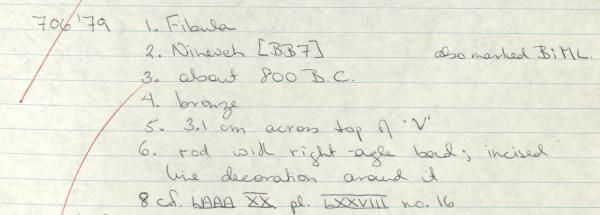 706'79 1. Fibula
2. Nineveh [BB7] also marked BiML.
3. about 800 B.C.
4. bronze
5. 3.1 cm across top of 'V'
6. rod with right-agle bend; incised
line decoration around it
8 cf. LAAA XX pl. LXXVIII no. 16